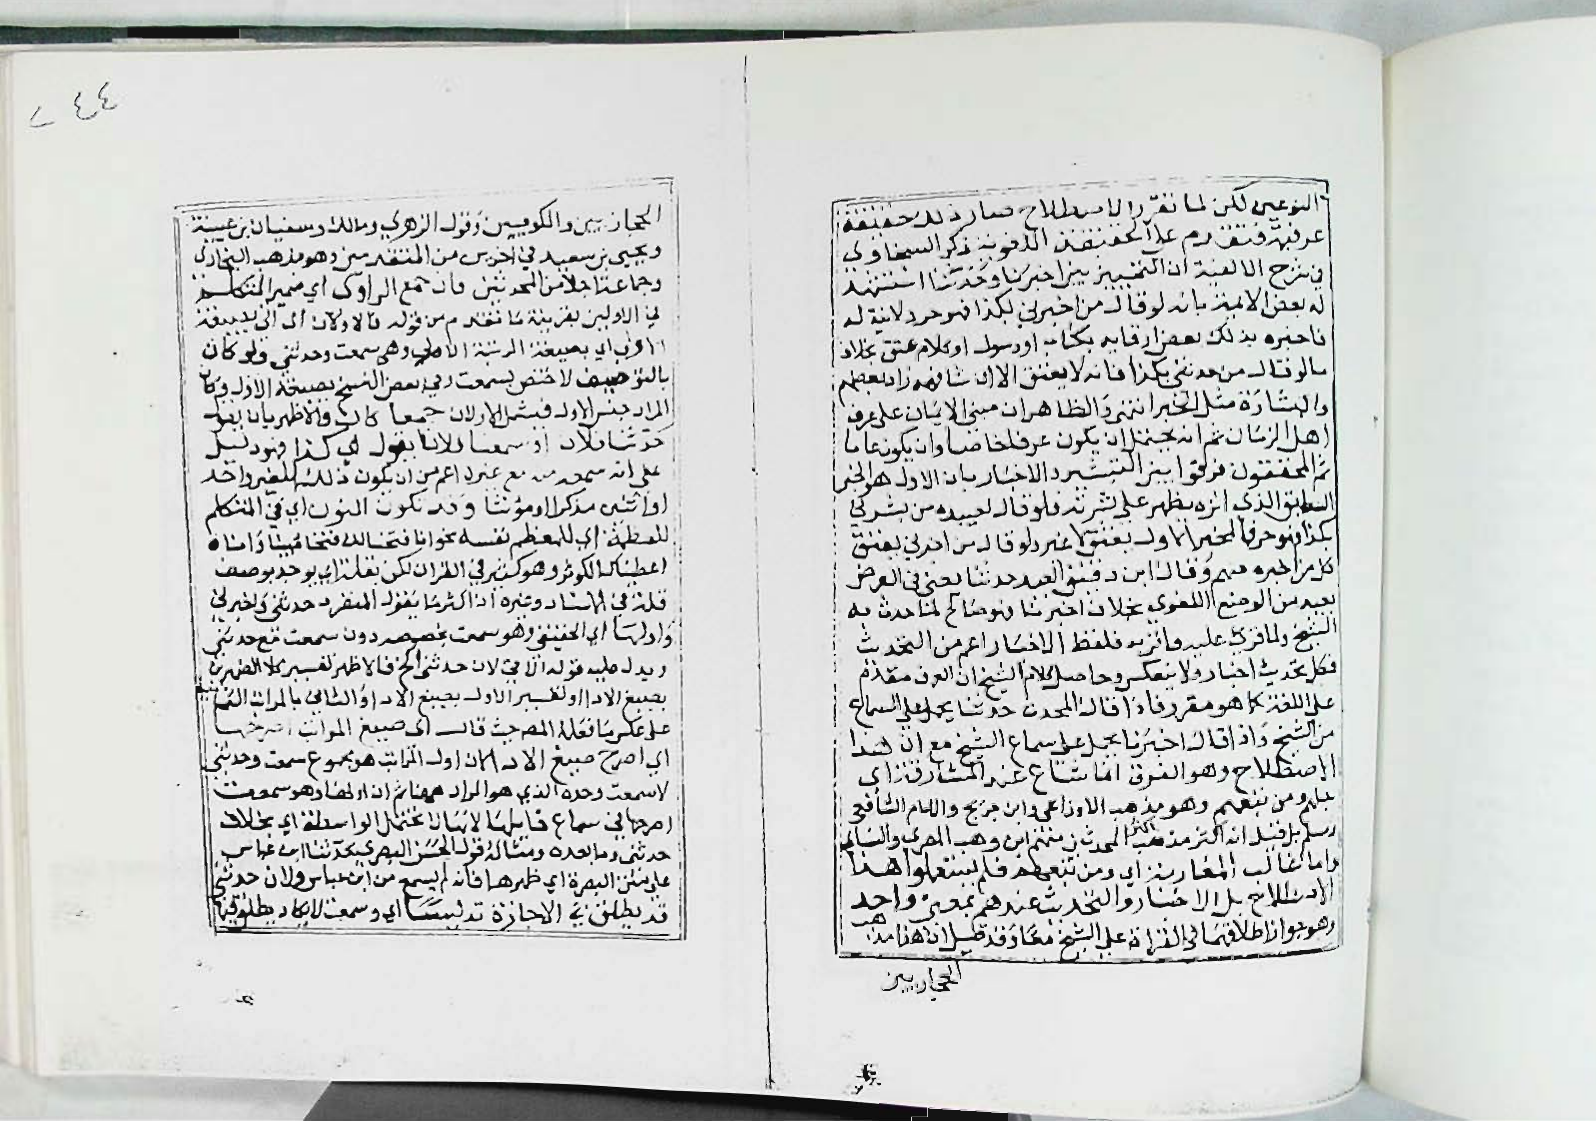 النوعين لكن لما تقرر الاصطلاح صار ذلك حقيقة
عرفية فتقدم على الحقيقة اللغوية ذكر السخاوي
في شرح الالفية ان التمييز بين اخبرنا وحدثنا استشهد
له بعض الايمة بانه لو قال من اخبرني بكذا فهو حر ولا نية له
فاخبره بذلك بعض ارقايه بكتاب او رسول او كلام عتق بخلاف
ما لو قال من حدثني بكذا فانه لا يعتق الا ان شافهه زاد بعضهم
والبشارة مثل الخبر انتهى والظاهر ان مبنى الايمان على عرف
اهل الزمان ثم انه يحتمل ان يكون عرفا خاصا وان يكون عاما
ثم المحققون فرقوا بين التبشير والاخبار بان الاول هو الخبر
الذي اثره يظهر على بشرته فلو قال لعبيده من بشرني
بكذا فهو حر فالمخبر الاول يعتق لا غير ولو قال من اخبرني يعتق
كل من اخبره منهم وقال ابن دقيق العيد حدثنا يعني في العرض
بعيد من الوضع اللغوي بخلاف اخبرنا فهو صالح لما حدث به
الشيخ ولما قرئ عليه فاقر به فلفظ الاخبار اعم من التحديث
فكل تحديث اخبار ولا ينعكس وحاصل كلام الشيخ ان العرف مقدم
على اللغة كما هو مقرر فاذا قال المحدث حدثنا يحمل على السماع
من الشيخ واذا قال اخبرنا يحمل على سماع الشيخ مع ان هذا
الاصطلاح وهو الفرق انما شاع عند المشارقة اي
جلهم ومن تبعهم وهو مذهب الاوزاعي وابن جريج والامام الشافعي
ومسلم بل قيل انه اكثر مذهب المحدثين منهم ابن وهب المصري والنسائي
واما غالب المغاربة اي ومن تبعهم فلم يستعملوا هذا
الاصطلاح بل الاخبار والتحديث عندهم بمعنى واحد
وهو جواز اطلاقهما في القراة على الشيخ معا وقد قيل ان هذا مذهب
الحجازيين
٢٤٤
الحجازيين والكوفيين وقول الزهري ومالك وسفيان بن عيينة
ويحيى بن سعيد في اخرين من المتقدمين وهو مذهب البخاري
وجماعة من المحدثين فان جمع الراوي اي ضمير المتكلم
في الاولين بقرينة ما تقدم من قوله فالاولان اي اتى بصيغة
اي بصيغة المرتبة الاولى وهي سمعت وحدثني ولو كان
بالتوصيف لاختص بسمعت وفي بعض النسخ بصيغة الاول وكان
المراد جنس الاول فيشمل الاولان جمعا كان والاظهر بان يقول
حدثنا فلان او سمعنا فلانا يقول اي كذا فهو دليل
على انه سمعه منه مع غيره اعم من ان يكون ذلك الغير واحد
او اثنين مذكرا او مؤنثا وقد تكون النون اي في المتكلم
للعظمة اي للمعظم نفسه نحو انا فتحنا لك فتحا مبينا وانا
اعطيناك الكوثر وهو كثير في القران لكن بقلة اي يوجد بوصف
قلة في الاسناد وغيره اذ اكثر ما يقول المنفرد حدثني واخبرني
واولها اي الحقيقي وهو سمعت بخصوصه دون سمعت مع حدثني
ويدل عليه قوله الاتي لان حدثني الخ فالاظهر تفسير الضميرين
بصيغ الادا او تفسير الاول بصيغ الادا والثاني بالمراتب
على عكس ما فعله المص حيث قال اي صيغ المراتب اصرحها
اي اصرح صيغ الادا لان اول المراتب هو مجموع سمعت وحدثني
لا سمعت وحده الذي هو المراد ههنا ثم ان اولها وهو سمعت
اصرحها في سماع قايلها لانها لا تحتمل الواسطة اي بخلاف
حدثني وما بعده ومثاله قول الحسن البصري حدثنا ابن عباس
على منبر البصرة اي ظهرها فانه لم يسمع من ابن عباس ولان حدثني
قد يطلق في الاجازة تدليسا اي وسمعت لا يكاد يطلق فيها